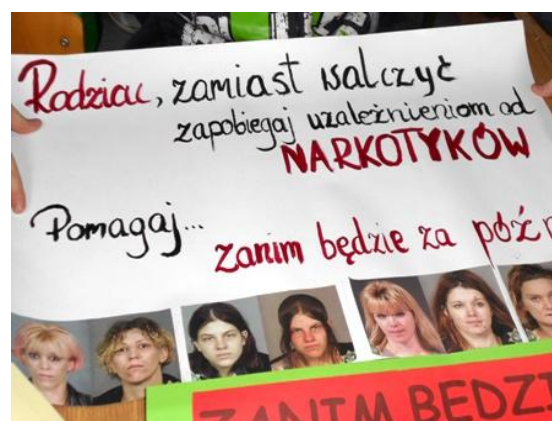 Rodzicu, zamiast walczyć
zapobiegaj uzależnieniom od
NARKOTYKÓW
Pomagaj...
zanim będzie za późn
ZANIM BĘDZI